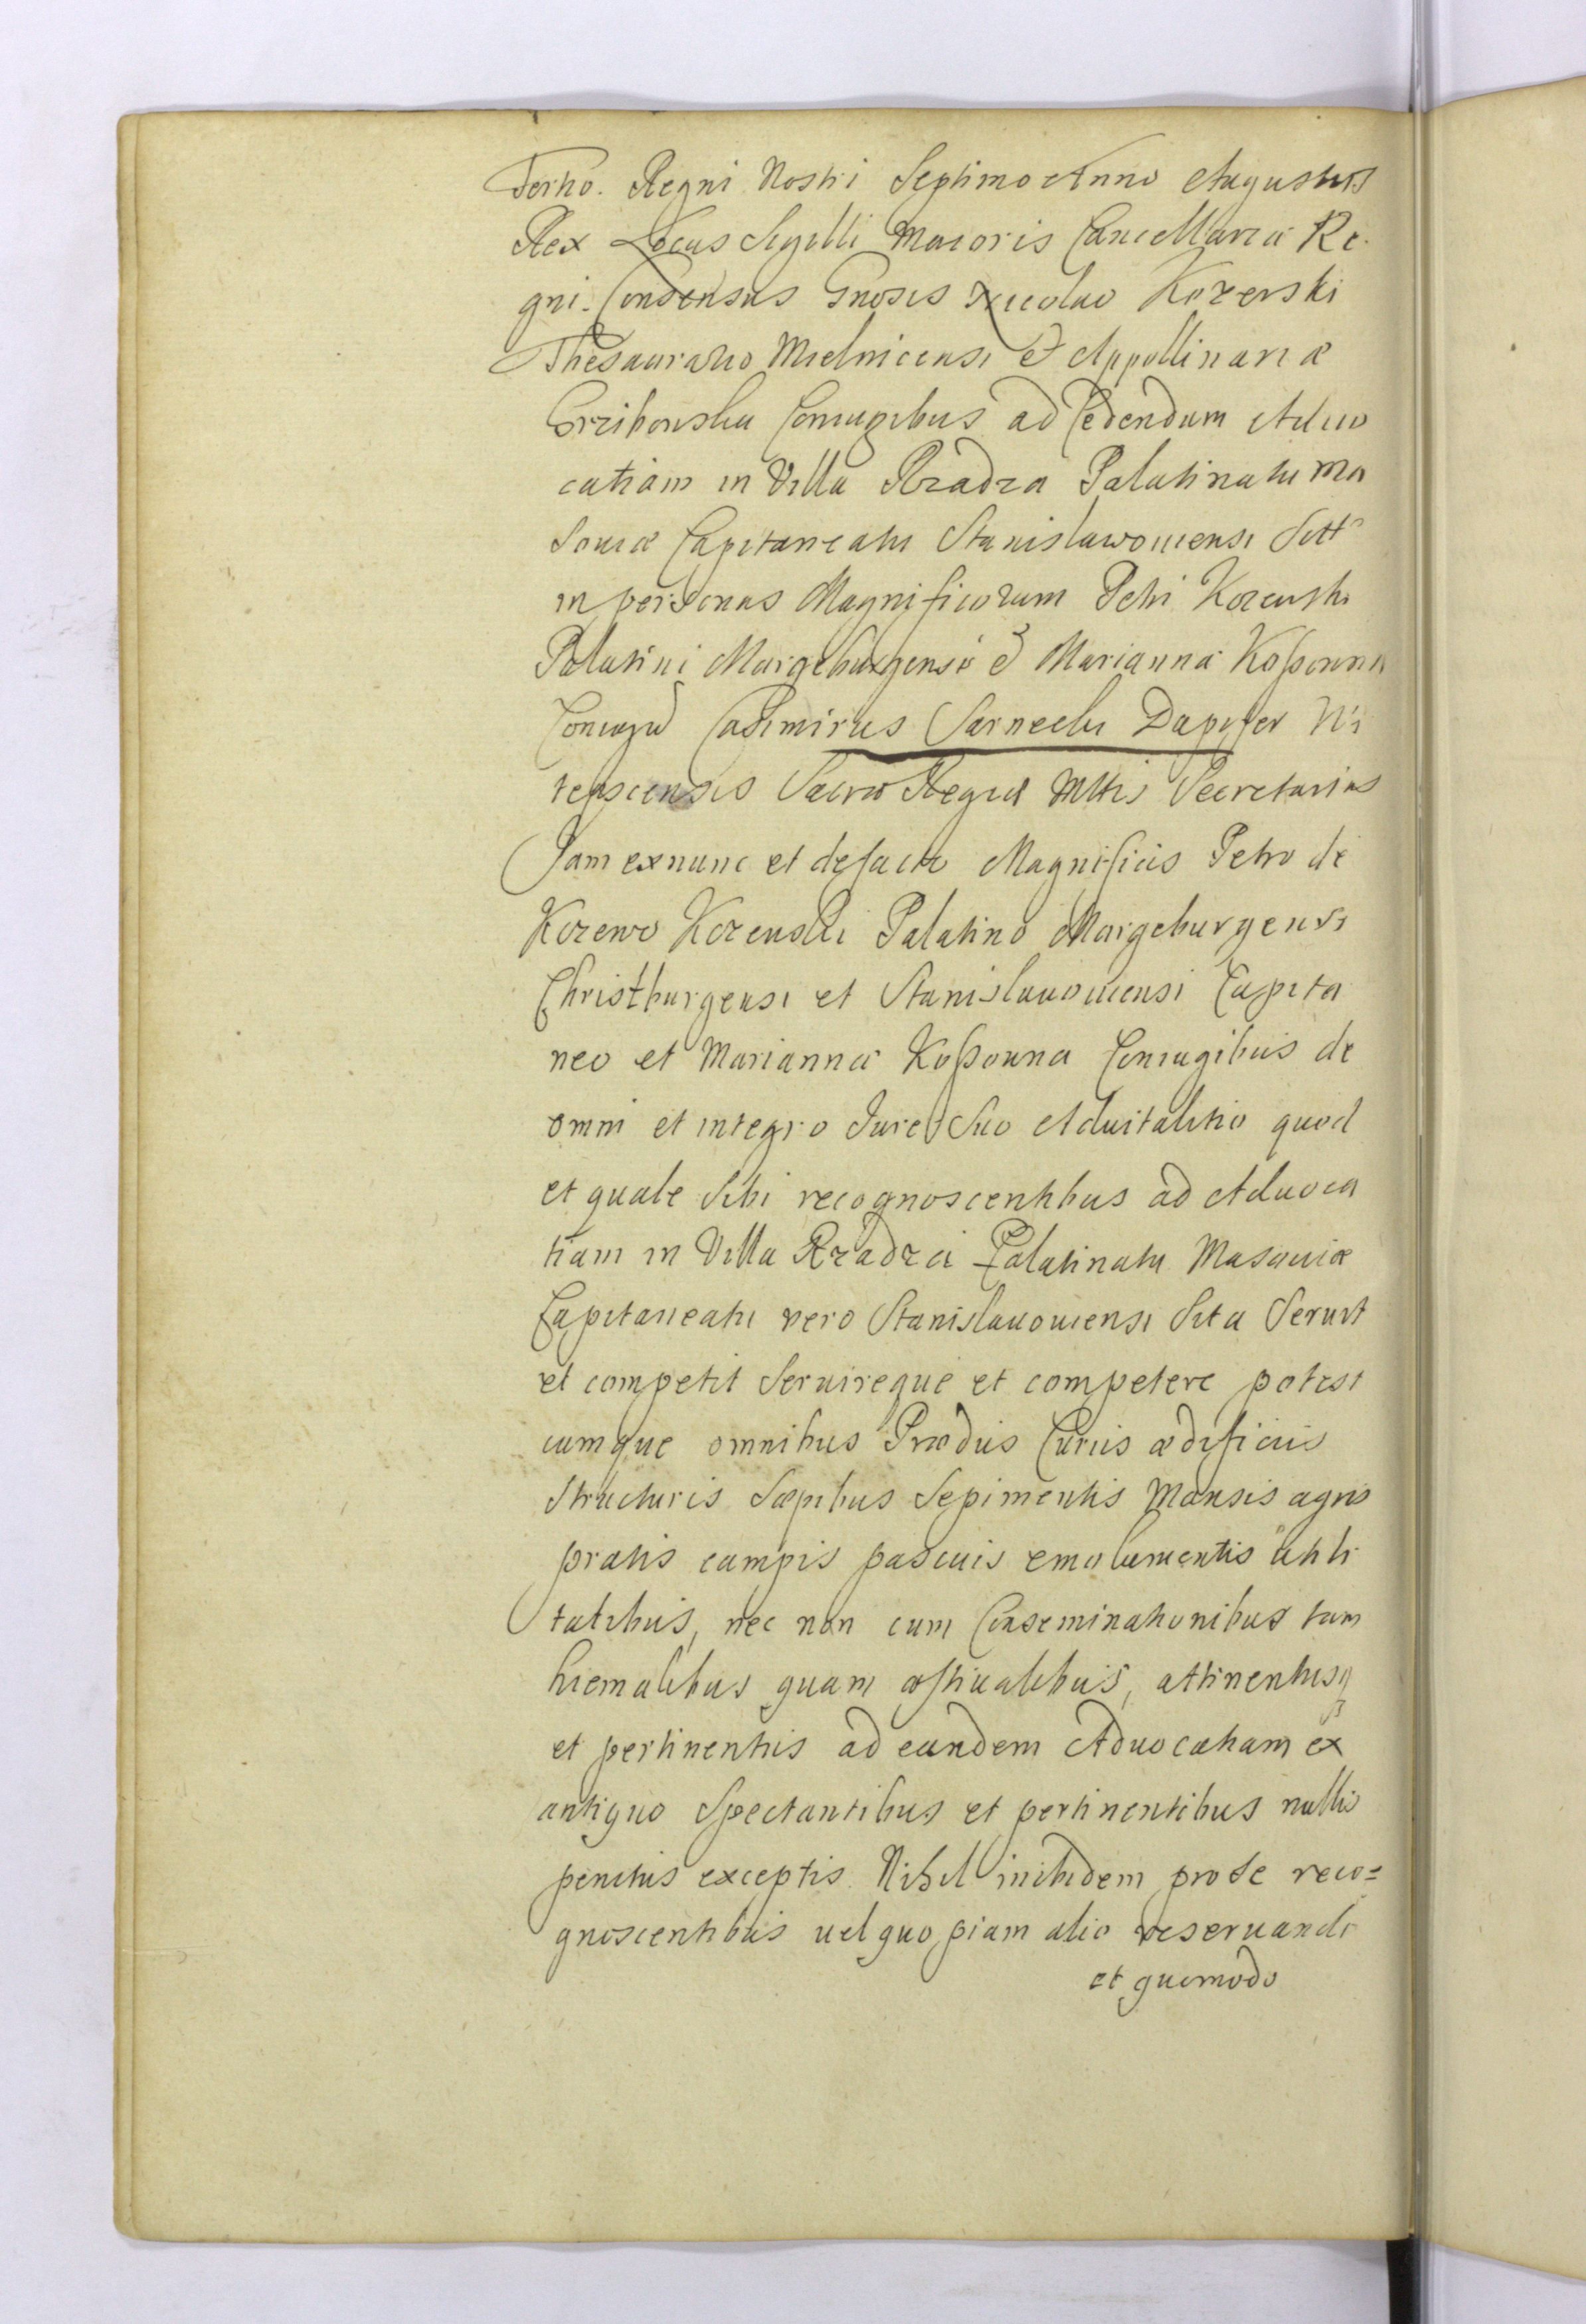 Tertio. Regni Nostri Septimo Anno Augustus
Rex Locus Sigilli Maioris Cancellariæ Re-
gni. Consensus Gnosis Nicolao Kozewski
Thesaurario Mielnicensi et Appollinariæ
Grzibowska Coniugibus ad Cedendum Aduo
catiam in Villa Rządza Palatinatu Ma
souiæ Capitaneatu Stanislawouiensi Sitt
in personas Magnificorum Petri Kozewski
Palatini Margeburgensis et Marianna Kossowna
Coniugu Casimirus Sarnecki Dapifer Wi
tepscensis Sacræ Regiæ Mttis Secretarius
Jam exnunc et defacto Magnificis Petro de
Kozewo Kozewski Palatino Margeburgensi
Christburgensi et Stanislauouiensi Capita
neo et Mariannæ Kossowna Coniugibus de
omni et integro Jure Suo Aduitalitio quod
et quale Sibi recognoscentibus ad Aduoca
tiam in Villa Rządza Palatinatu Masouiæ
Capitaneatu vero Stanislauouiensi Sita Seruit
et competit Seruireque et competere potest
cumque omnibus Prædiis Curiis ædificiis
Structuris Sæpibus Sepimentis Mansis agris
pratis campis pascuis emolumentis utili
tatibus, nec non cum Conseminationibus tam
hiemalibus quam æstiualibus, attinentiisq
et pertinentiis ad eandem Aduocatiam ex
antiquo Spectantibus et pertinentibus nullis
penitus exceptis Nihil inibidem pro se reco=
gnoscentibus uel quo piam alio reseruando
et quomodo